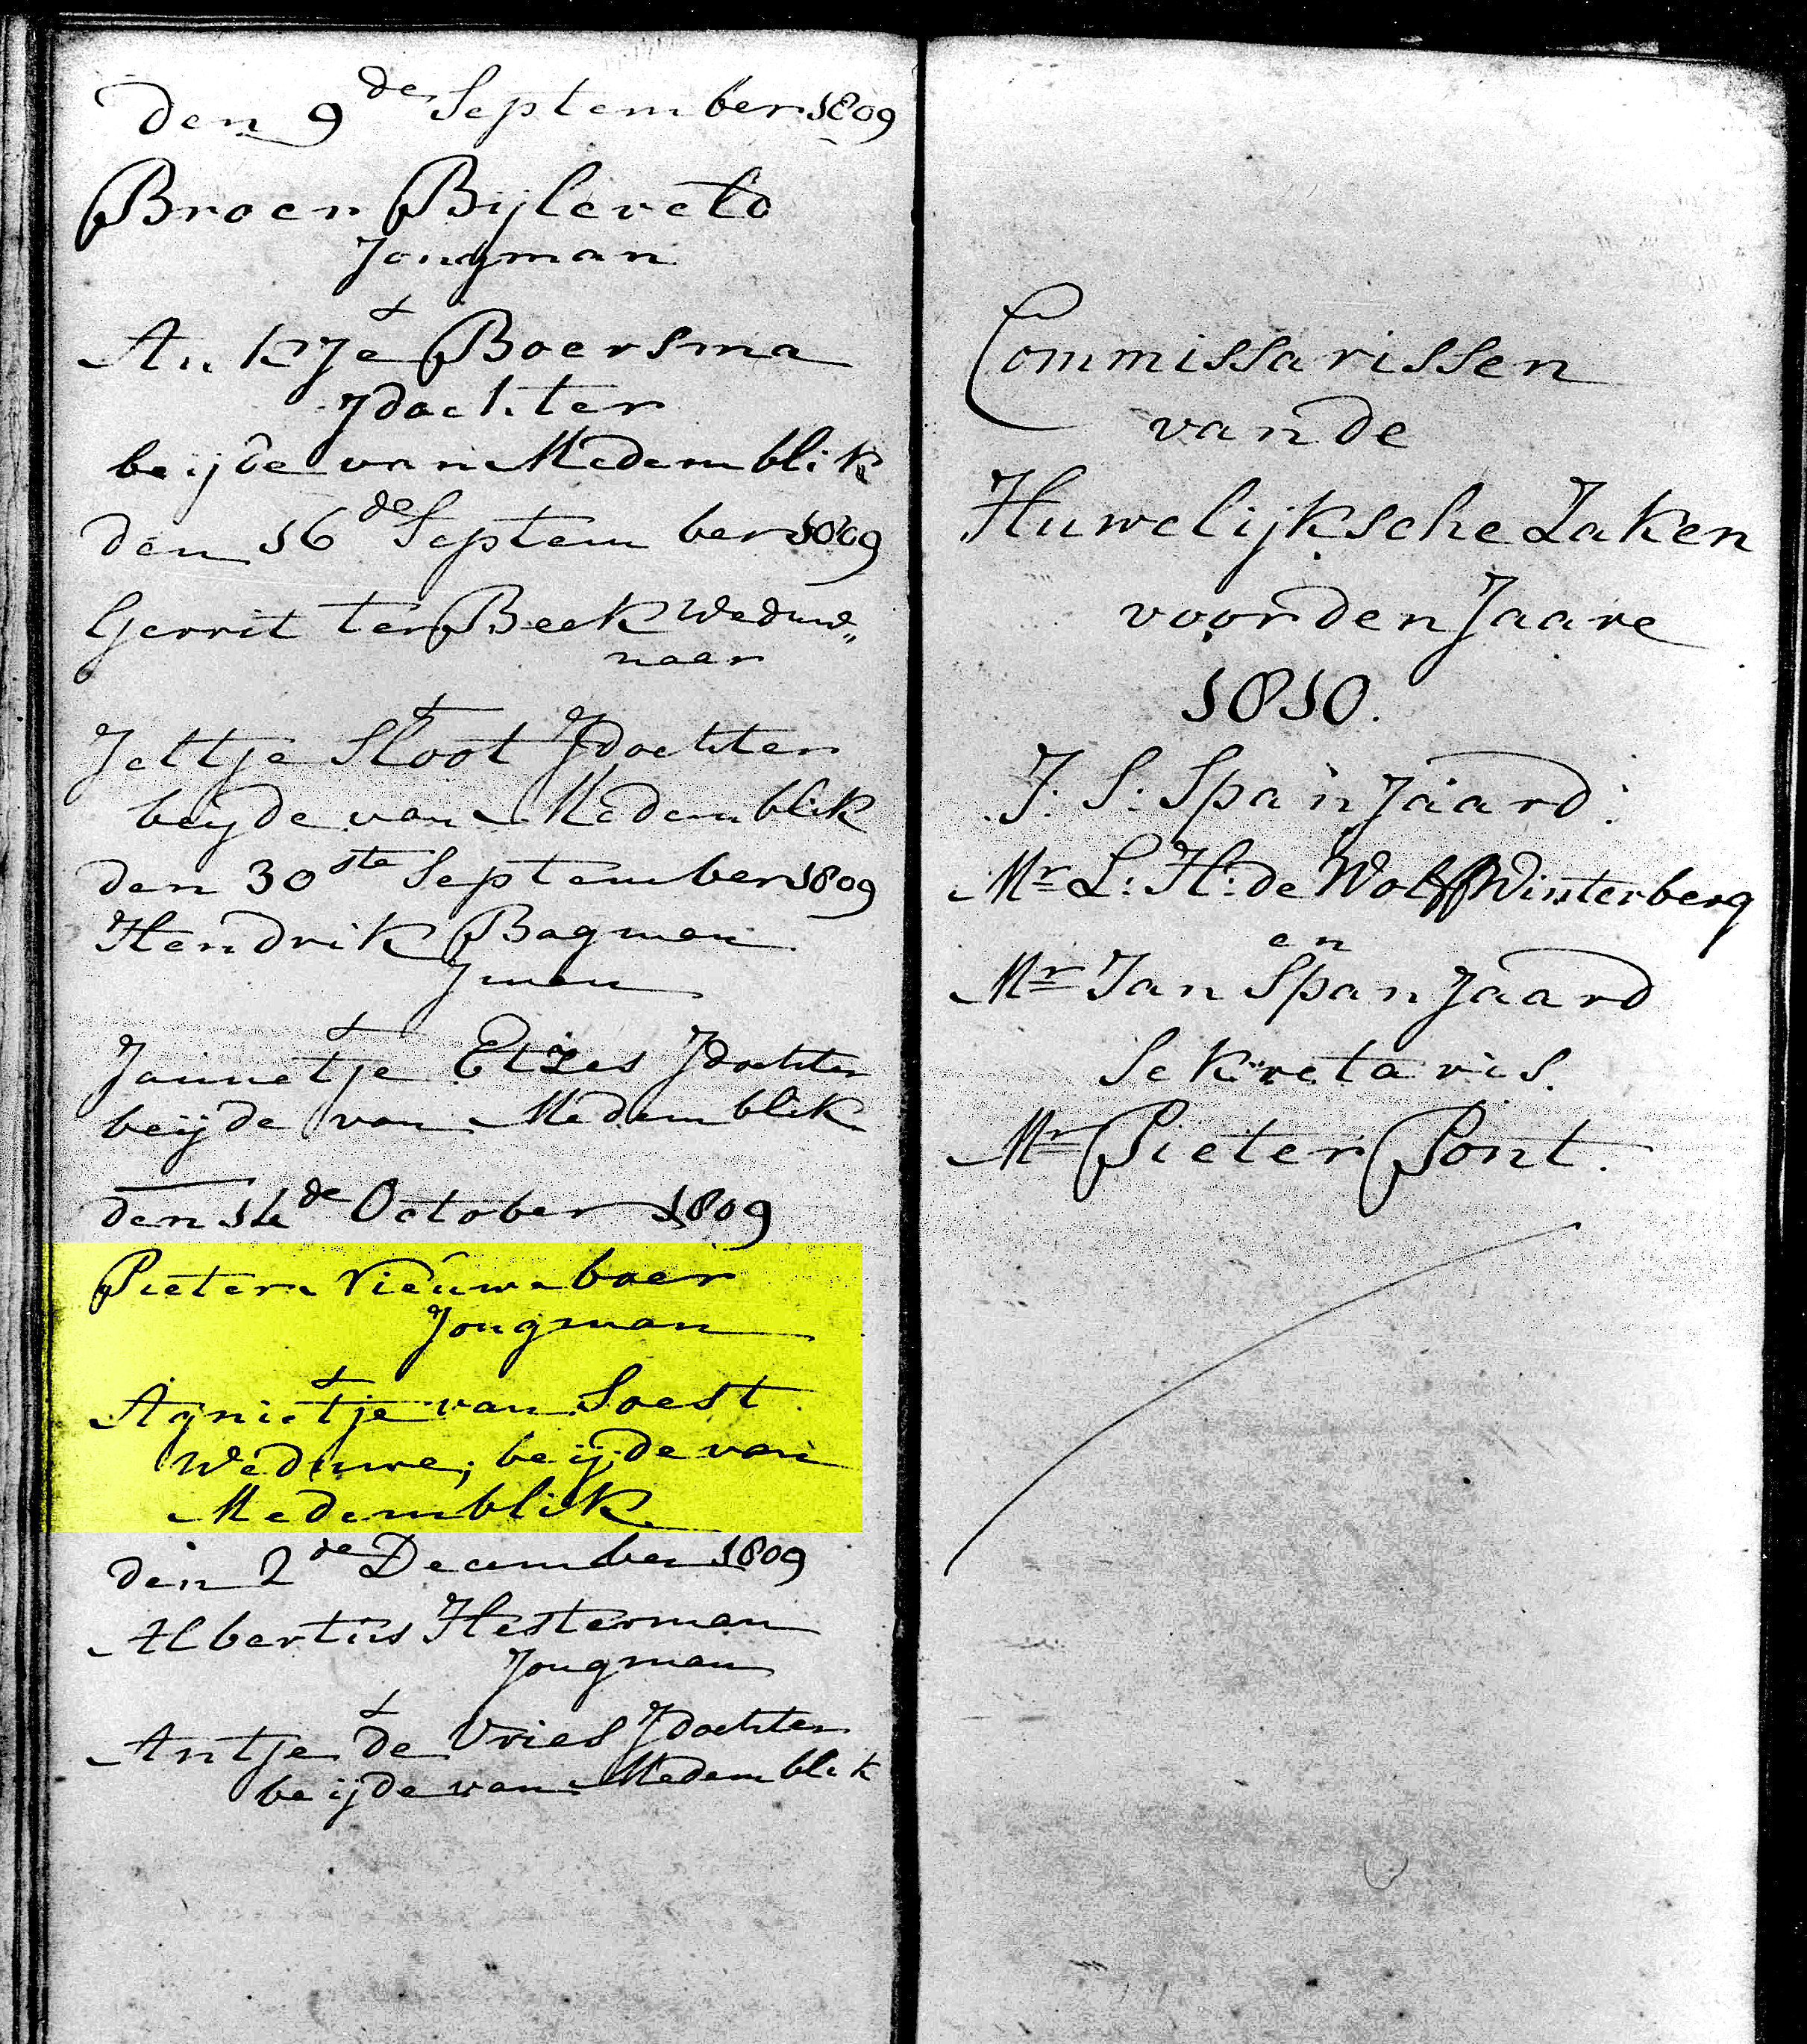 den 9de September 1809
Broer Bijleveld
Jongman
&
Ankje Boersma
Jdochter
beijde van Medemblik
den 16de September 1809
Gerrit ter Beek Weduw„
naar
&
Jettje Sloot Jdochter
beijde van Medemblik
den 30ste September 1809
Hendrik Bagman
Jman
&
Jannetje Etzes Jdochter
beijde van Medemblik
den 14de October 1809
Pieter Nieuweboer
Jongman
&
Agnietje van Soest
Weduwe, beijde van
Medemblik
den 2de December 1809
Albertus Hesterman
Jongman
&
Antje de Vries Jdochter
beijde van Medemblik
Commissarissen
van de
Huwelijksche Zaken
voor den Jaare
1810.
J: S: Spanjaard:
Mr L: H: de Wolff Winterberg
en
Mr Jan Spanjaard
Sekretaris.
Mr Pieter Pont.